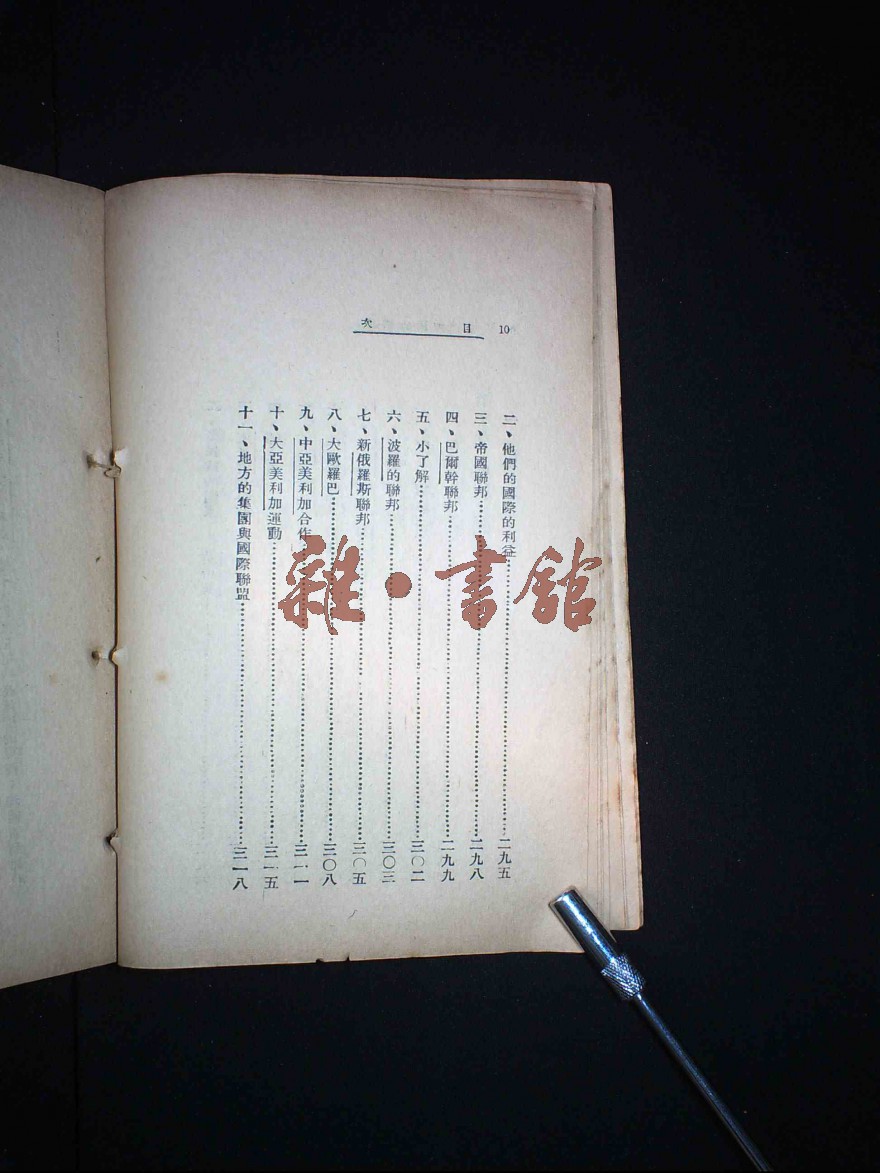 目次 10
二、他們的國際的利益……二九五
三、帝國聯邦……二九八
四、巴爾幹聯邦……二九九
五、小了解……三〇二
六、波羅的聯邦……三〇三
七、新俄羅斯聯邦……三〇五
八、大歐羅巴……三〇八
九、中亞美利加合作……三一一
十、大亞美利加運動……三一五
十一、地方的集團與國際聯盟……三一八
雜·書館